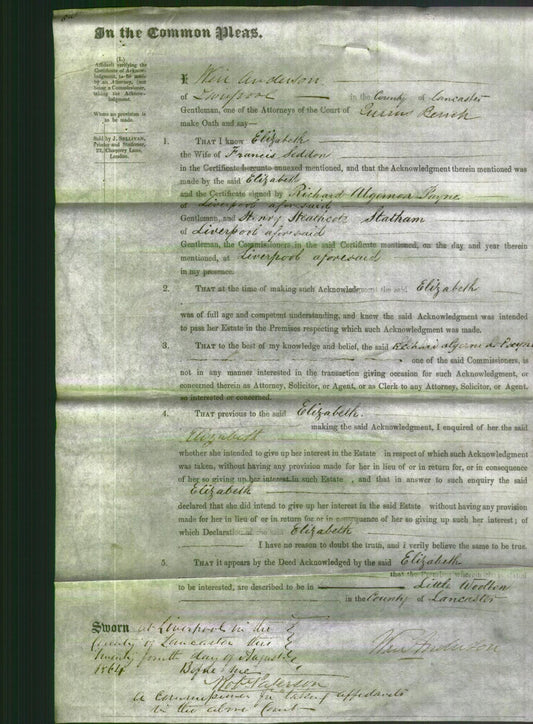 In the Common Pleas.
(I.)
Affidavit verifying the
Certificate of Acknow-
ledgment, to be made
by an Attorney, (not
being a Commissioner,
taking the Acknow-
ledgment.
Where no provision is
to be made.
Sold by J. SULLIVAN,
Printer and Stationer,
22, Chancery Lane,
London.
I Weir Anderson
of Liverpool in the County of Lancaster
Gentleman, one of the Attorneys of the Court of Queens Bench
make Oath and say—
1. THAT I know Elizabeth
the Wife of Francis Seddon
in the Certificate hereunto annexed mentioned, and that the Acknowledgment therein mentioned was
made by the said Elizabeth
and the Certificate signed by Richard Algernon Payne
of Liverpool aforesaid
Gentleman, and Henry Heathcote Statham
of Liverpool aforesaid
Gentleman, the Commissioners in the said Certificate mentioned, on the day, and year therein
mentioned, at Liverpool aforesaid
in my presence.
2. THAT at the time of making such Acknowledgment the said Elizabeth
was of full age and competent understanding, and knew the said Acknowledgment was intended
to pass her Estate in the Premises respecting which such Acknowledgment was made.
3. THAT to the best of my knowledge and belief, the said Richard Algernon Payne
one of the said Commissioners, is
not in any manner interested in the transaction giving occasion for such Acknowledgment, or
concerned therein as Attorney, Solicitor, or Agent, or as Clerk to any Attorney, Solicitor, or Agent,
so interested or concerned.
4. THAT previous to the said Elizabeth
making the said Acknowledgment, I enquired of her the said
Elizabeth
whether she intended to give up her interest in the Estate in respect of which such Acknowledgment
was taken, without having any provision made for her in lieu of or in return for, or in consequence
of her so giving up her interest in such Estate , and that in answer to such enquiry the said
Elizabeth
declared that she did intend to give up her interest in the said Estate without having any provision
made for her in lieu of or in return for or in consequence of her so giving up such her interest; of
which Declaration of the said Elizabeth
I have no reason to doubt the truth, and I verily believe the same to be true.
5. THAT it appears by the Deed Acknowledged by the said Elizabeth
that the
to be interested, are described to be in Little Woolton
in the County of Lancaster
Sworn at Liverpool in the
County of Lancaster this
twenty fourth day of August
1864 Before me
Weir Anderson
Robt Paterson
a commissioner for taking affidavits
in the above Court